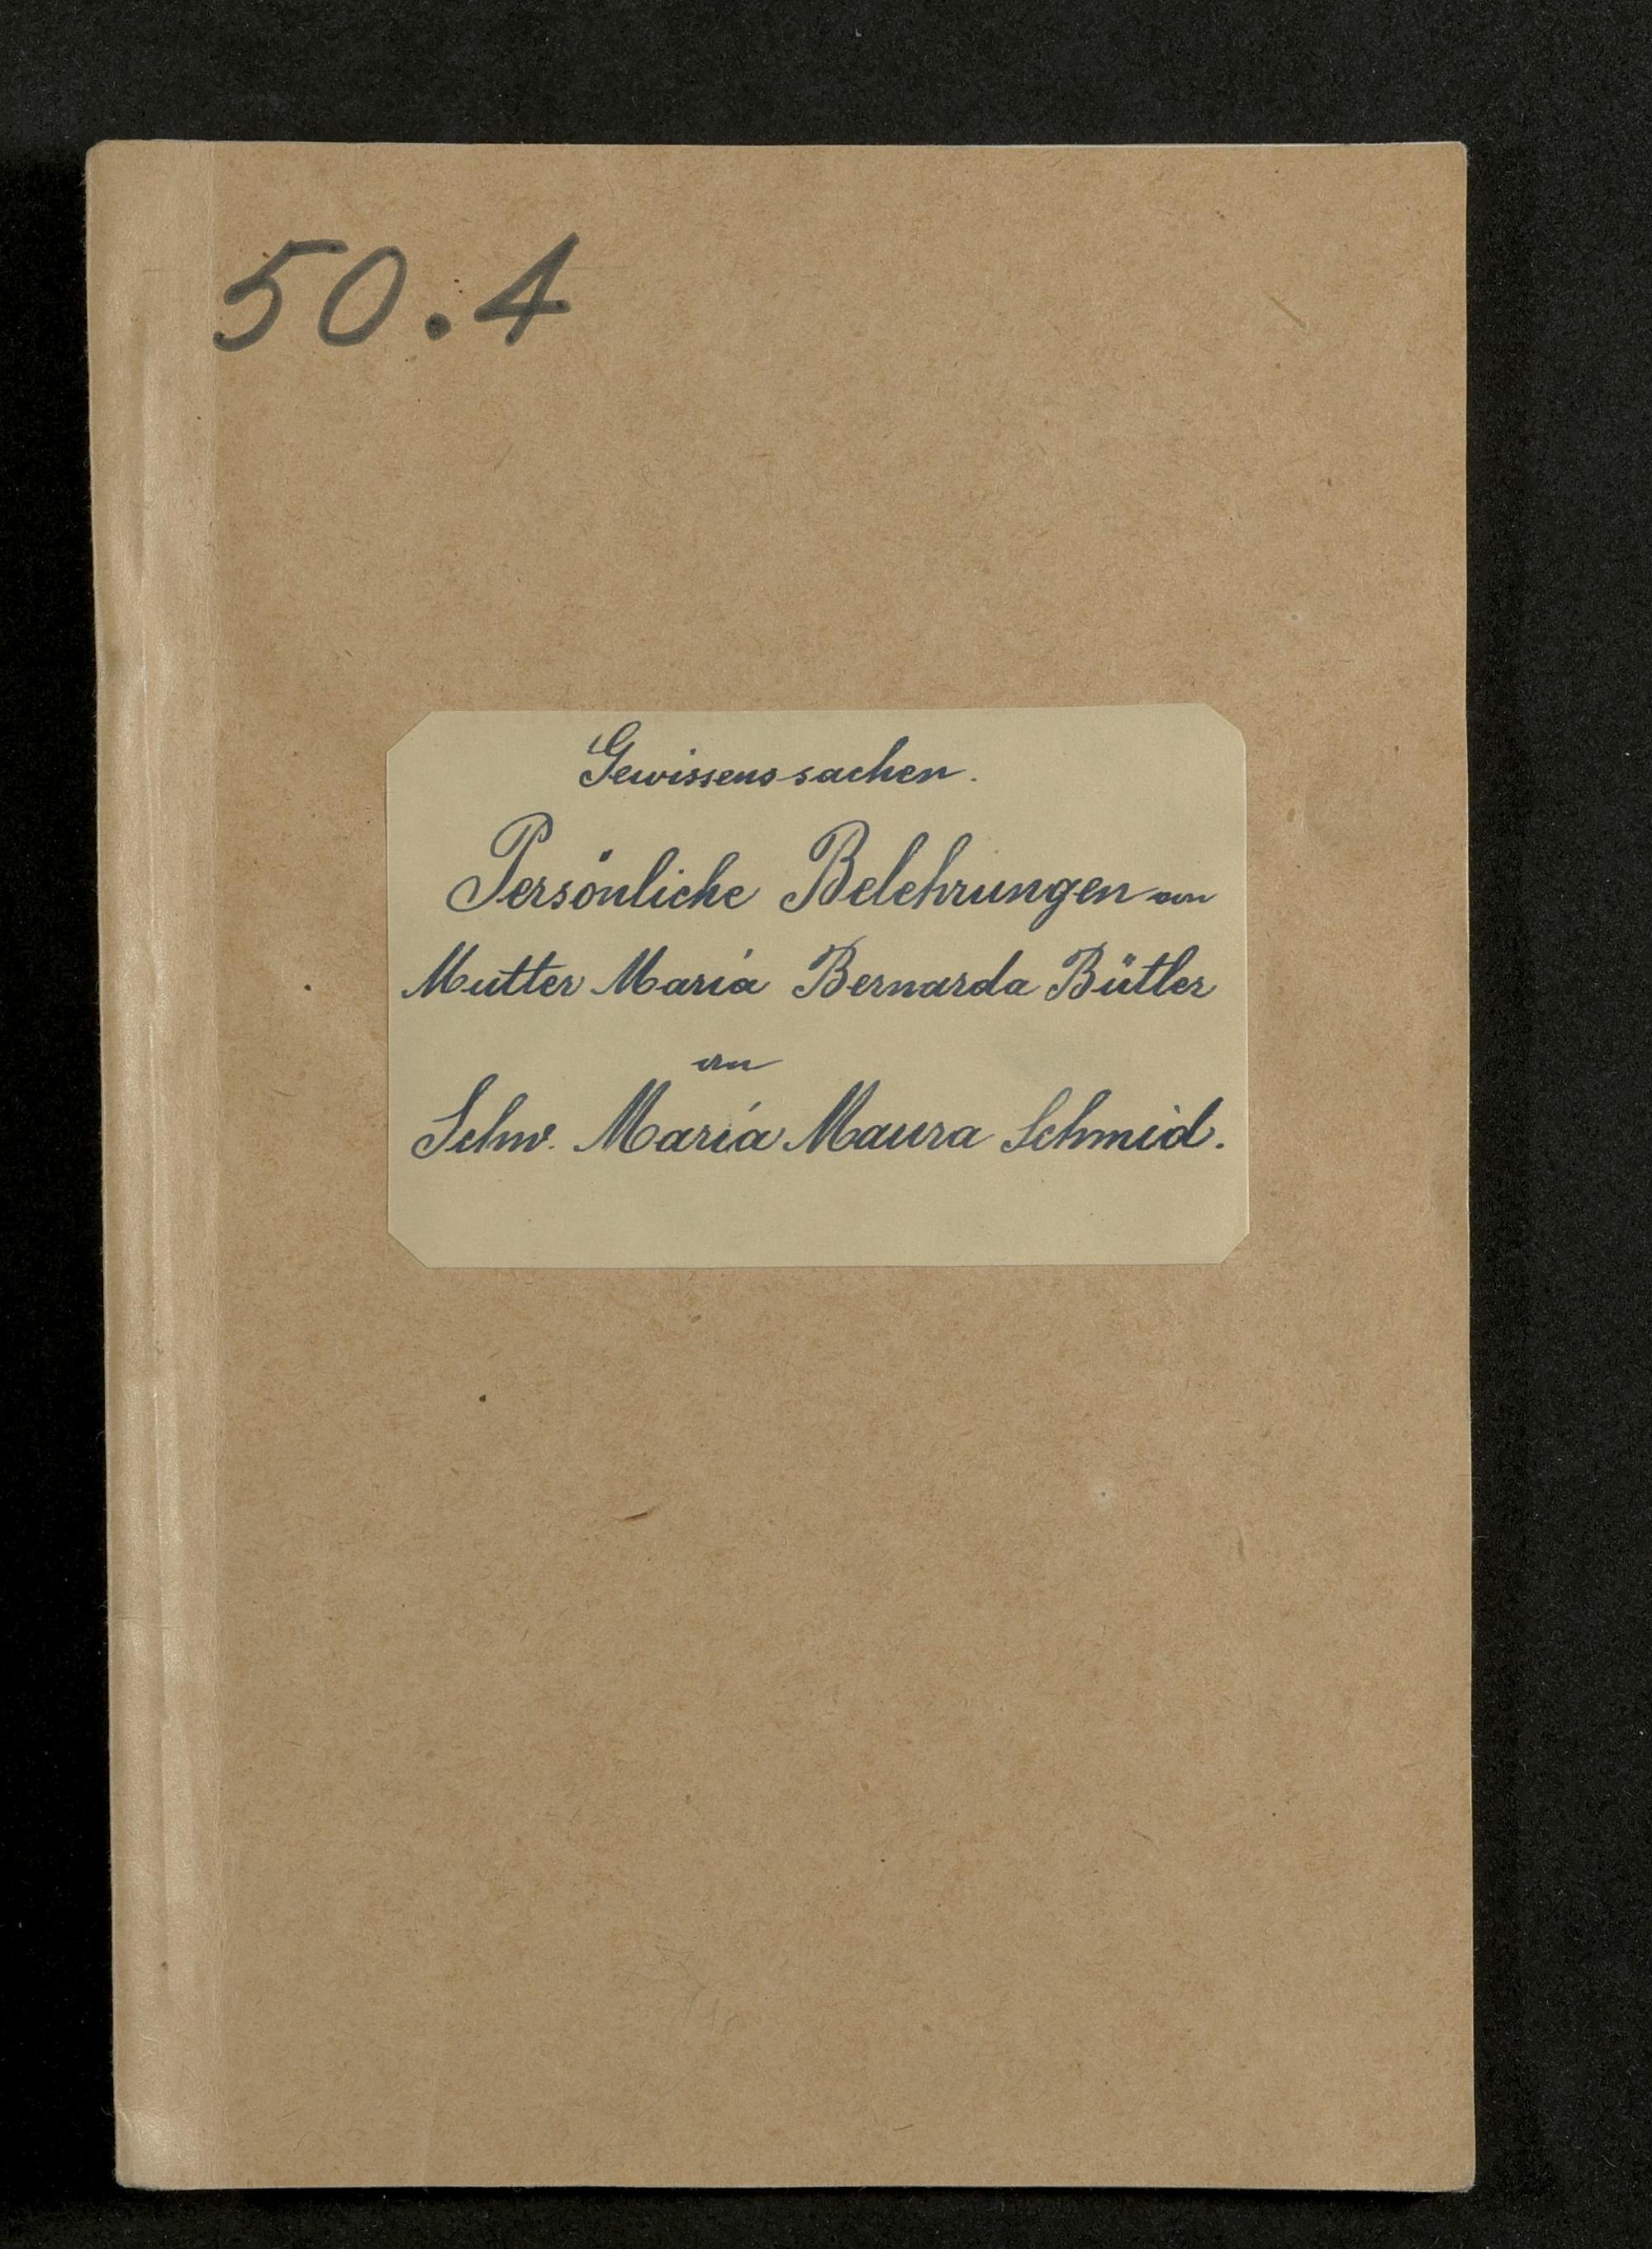 50.4
Gewissenssachen.
Persönliche Belehrungen
Mutter María Bernarda Bütler
an
Schw. María Maura Schmid.